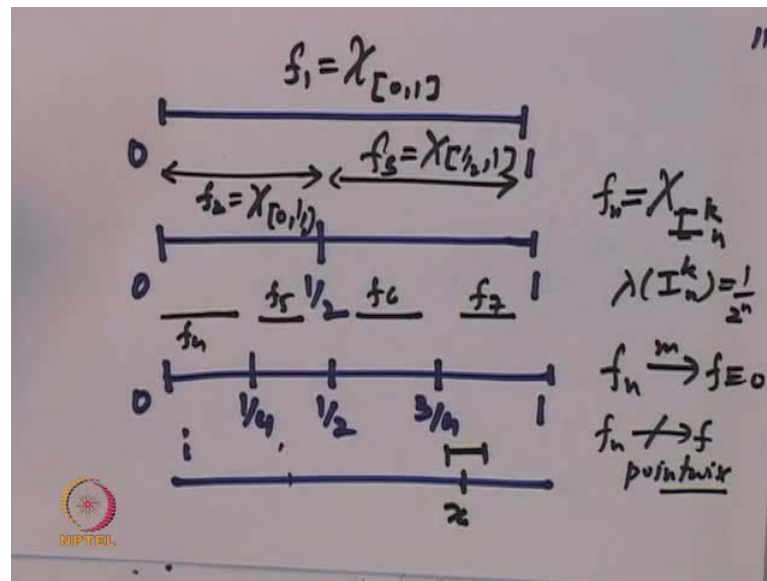 f₁ = χ_[0,1]
0 1
f₂ = χ_[0,½) f₃ = χ_[½,1]
0 1/2 1
f₄ f₅ f₆ f₇
0 1/4 1/2 3/4 1
x
fₙ = χ_Iₙᵏ
λ(Iₙᵏ) = 1/2ⁿ
fₙ →ᵐ f ≡ 0
fₙ ↛ f
pointwise
NPTEL